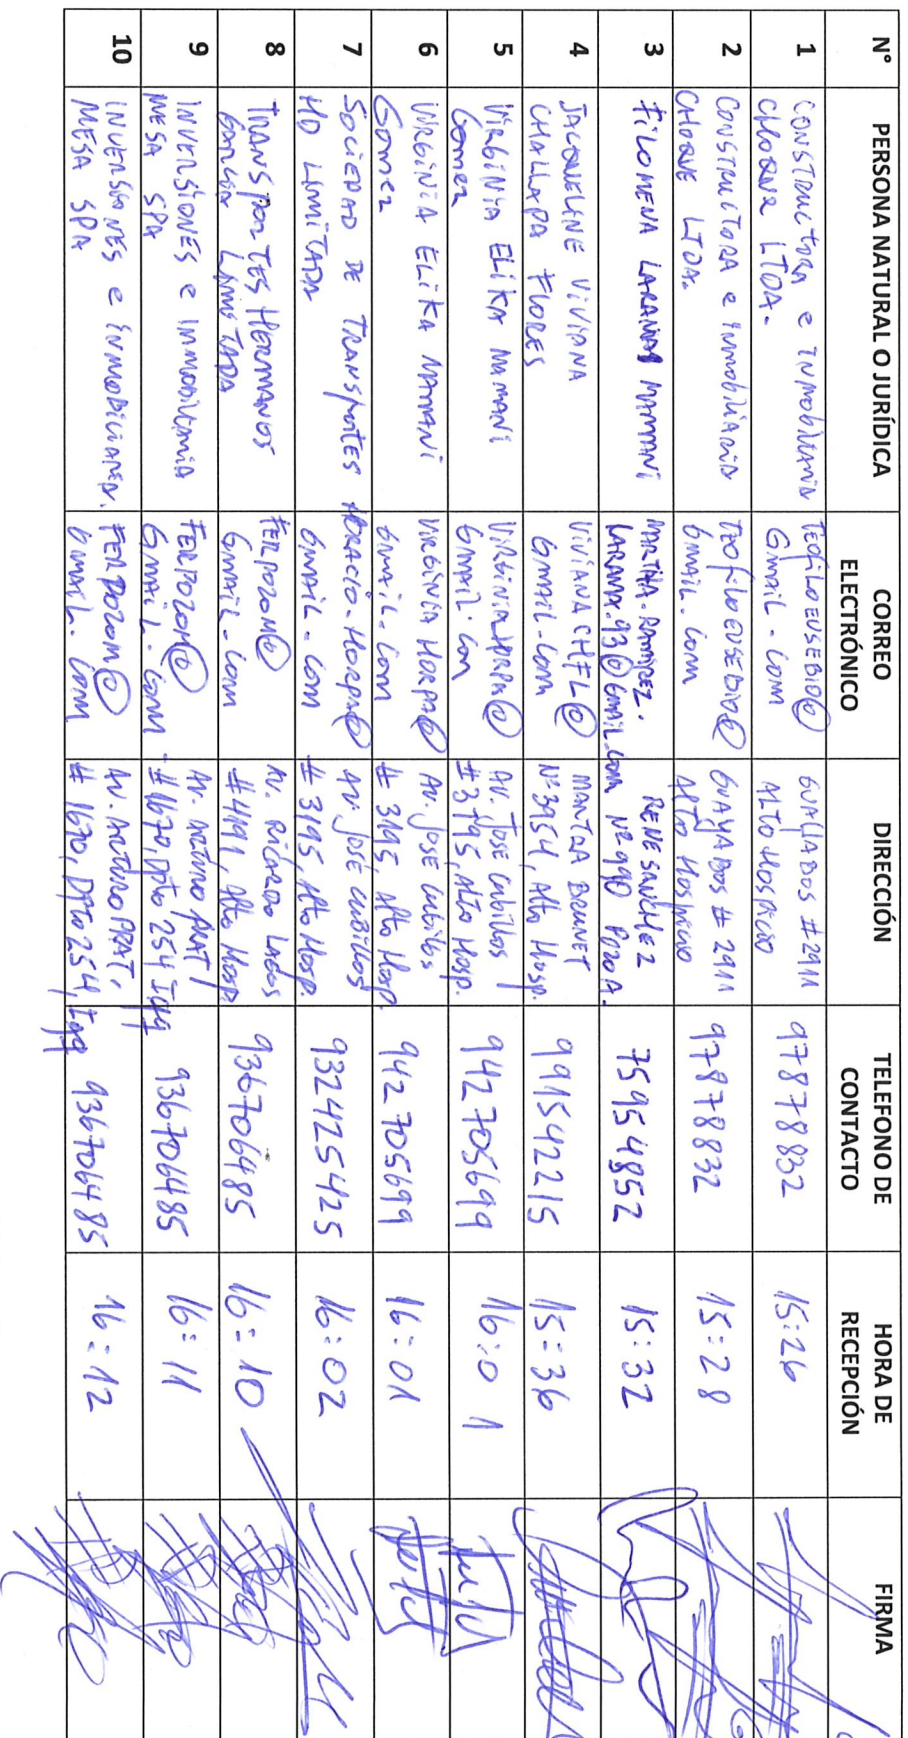 N°
PERSONA NATURAL O JURÍDICA
CORREO
ELECTRÓNICO
DIRECCIÓN
TELEFONO DE
CONTACTO
HORA DE
RECEPCIÓN
FIRMA
1
CONSTRUCTORA e INMOBILIARIA
CHOQUE LTDA.
TEOFILOEUSEBIO@
GMAIL.COM
GUAYABOS #2911
ALTO HOSPICIO
97878832
15:26
2
CONSTRUCTORA e INMOBILIARIA
CHOQUE LTDA.
TEOFILOEUSEBIO@
GMAIL.COM
GUAYABOS # 2911
ALTO HOSPICIO
97878832
15:28
3
FILOMENA LARAMA MAMANI
MARTHA.RAMIREZ.
LARAMA.93@GMAIL.COM
RENE SANCHEZ
N° 990 POZO A.
75954852
15:32
4
JACQUELINE VIVIANA
CHALLAPA FLORES
VIVIANACHFL@
GMAIL.COM
MANTRA BRUNET
N°3954, Alto Hosp.
991542215
15:36
5
VIRGINIA ELIKA MAMANI
Gomez
GMAIL.COM
AV. JOSE Cubillos
#3795, Alto Hosp.
942705699
16:01
6
VIRGINIA ELIKA MAMANI
Gomez
VIRGINIA MORPA@
GMAIL.COM
AV. JOSE Cubillos
# 3195, Alto Hosp.
942705699
16:01
7
SOCIEDAD DE TRANSPORTES
HD LIMITADA
HORACIO.MORPA@
GMAIL.COM
AV. JOSÉ CUBILLOS
# 3195, Alto Hosp.
932425425
16:02
8
TRANSPORTES HERMANOS
GARCIA LIMITADA
FERPOZOM@
GMAIL.COM
AV. RICARDO LAGOS
#4191, Alto Hosp.
936706485
16:10
9
INVERSIONES e INMOBILIARIA
MESA SPA
FERPOZOM@
GMAIL.COM
AV. ARTURO PRAT
#1670, Dpto 254 Iqq
936706485
16:11
10
INVERSIONES e INMOBILIARIA
MESA SPA
FERPOZOM@
GMAIL.COM
AV. ARTURO PRAT,
# 1670, Dpto 254, Iqq
936706485
16:12